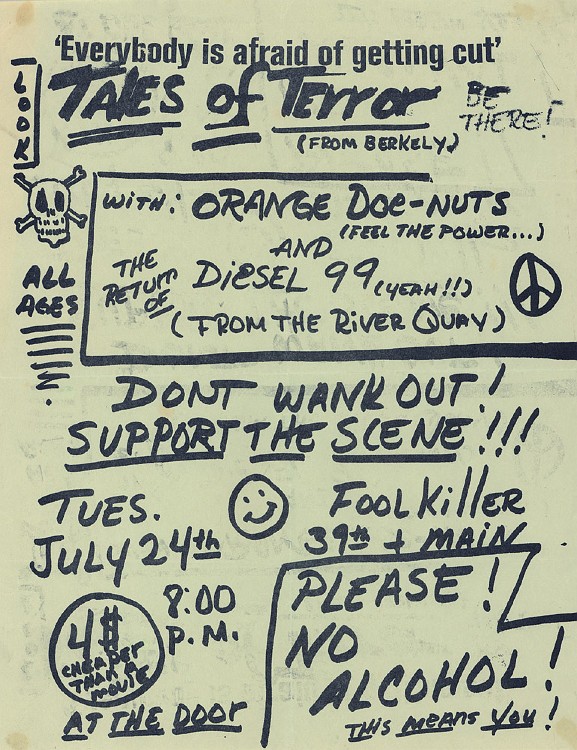 'Everybody is afraid of getting cut'
LOOK
TALES of TERROR
BE THERE!
(FROM BERKELY)
WITH: ORANGE DOE-NUTS
(FEEL THE POWER...)
AND
THE RETURN OF
DIESEL 99 (YEAH!!)
(FROM THE RIVER QUAY)
ALL
AGES
DONT WANK OUT!
SUPPORT THE SCENE!!!
TUES.
JULY 24th
8:00
P.M.
FOOLKILLER
39th + MAIN
4$
CHEAPER
THAN A
MOVIE
AT THE DOOR
PLEASE!
NO
ALCOHOL!
THIS MEANS YOU!